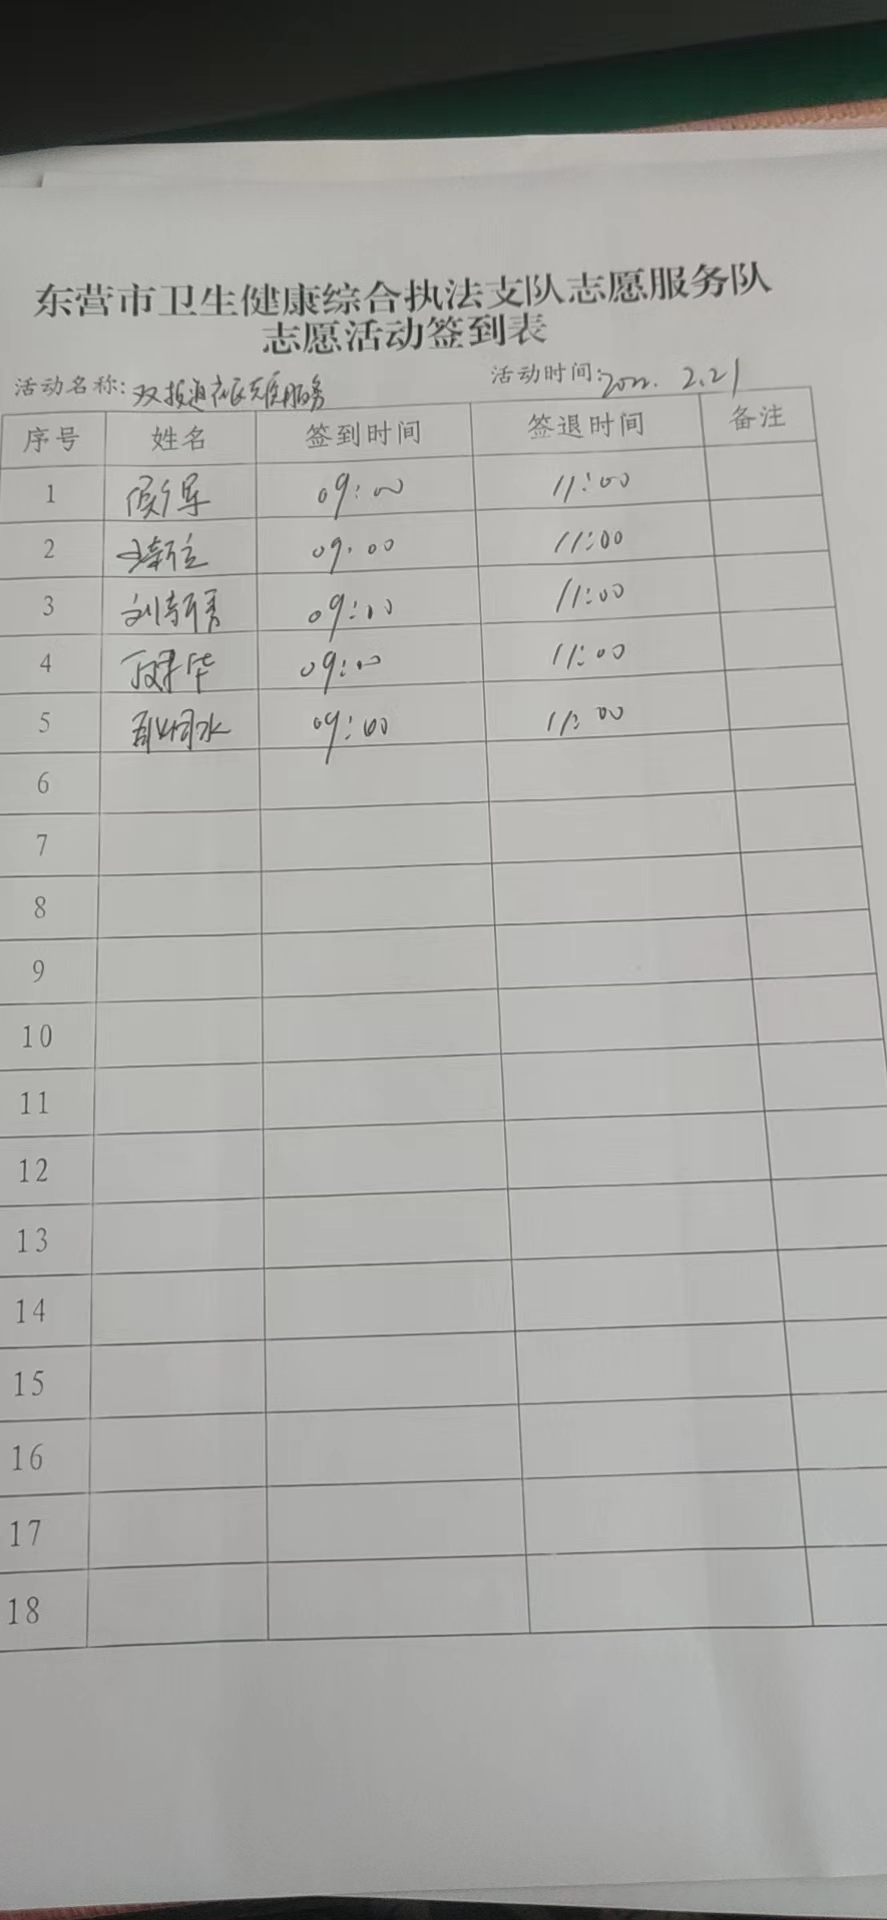 东营市卫生健康综合执法支队志愿服务队
志愿活动签到表
活动名称: 双报道志愿服务 活动时间: 2022. 2.21
序号 姓名 签到时间 签退时间 备注
1 09:00 11:00
2 09:00 11:00
3 刘新秀 09:00 11:00
4 09:00 11:00
5 09:00 11:00
6
7
8
9
10
11
12
13
14
15
16
17
18